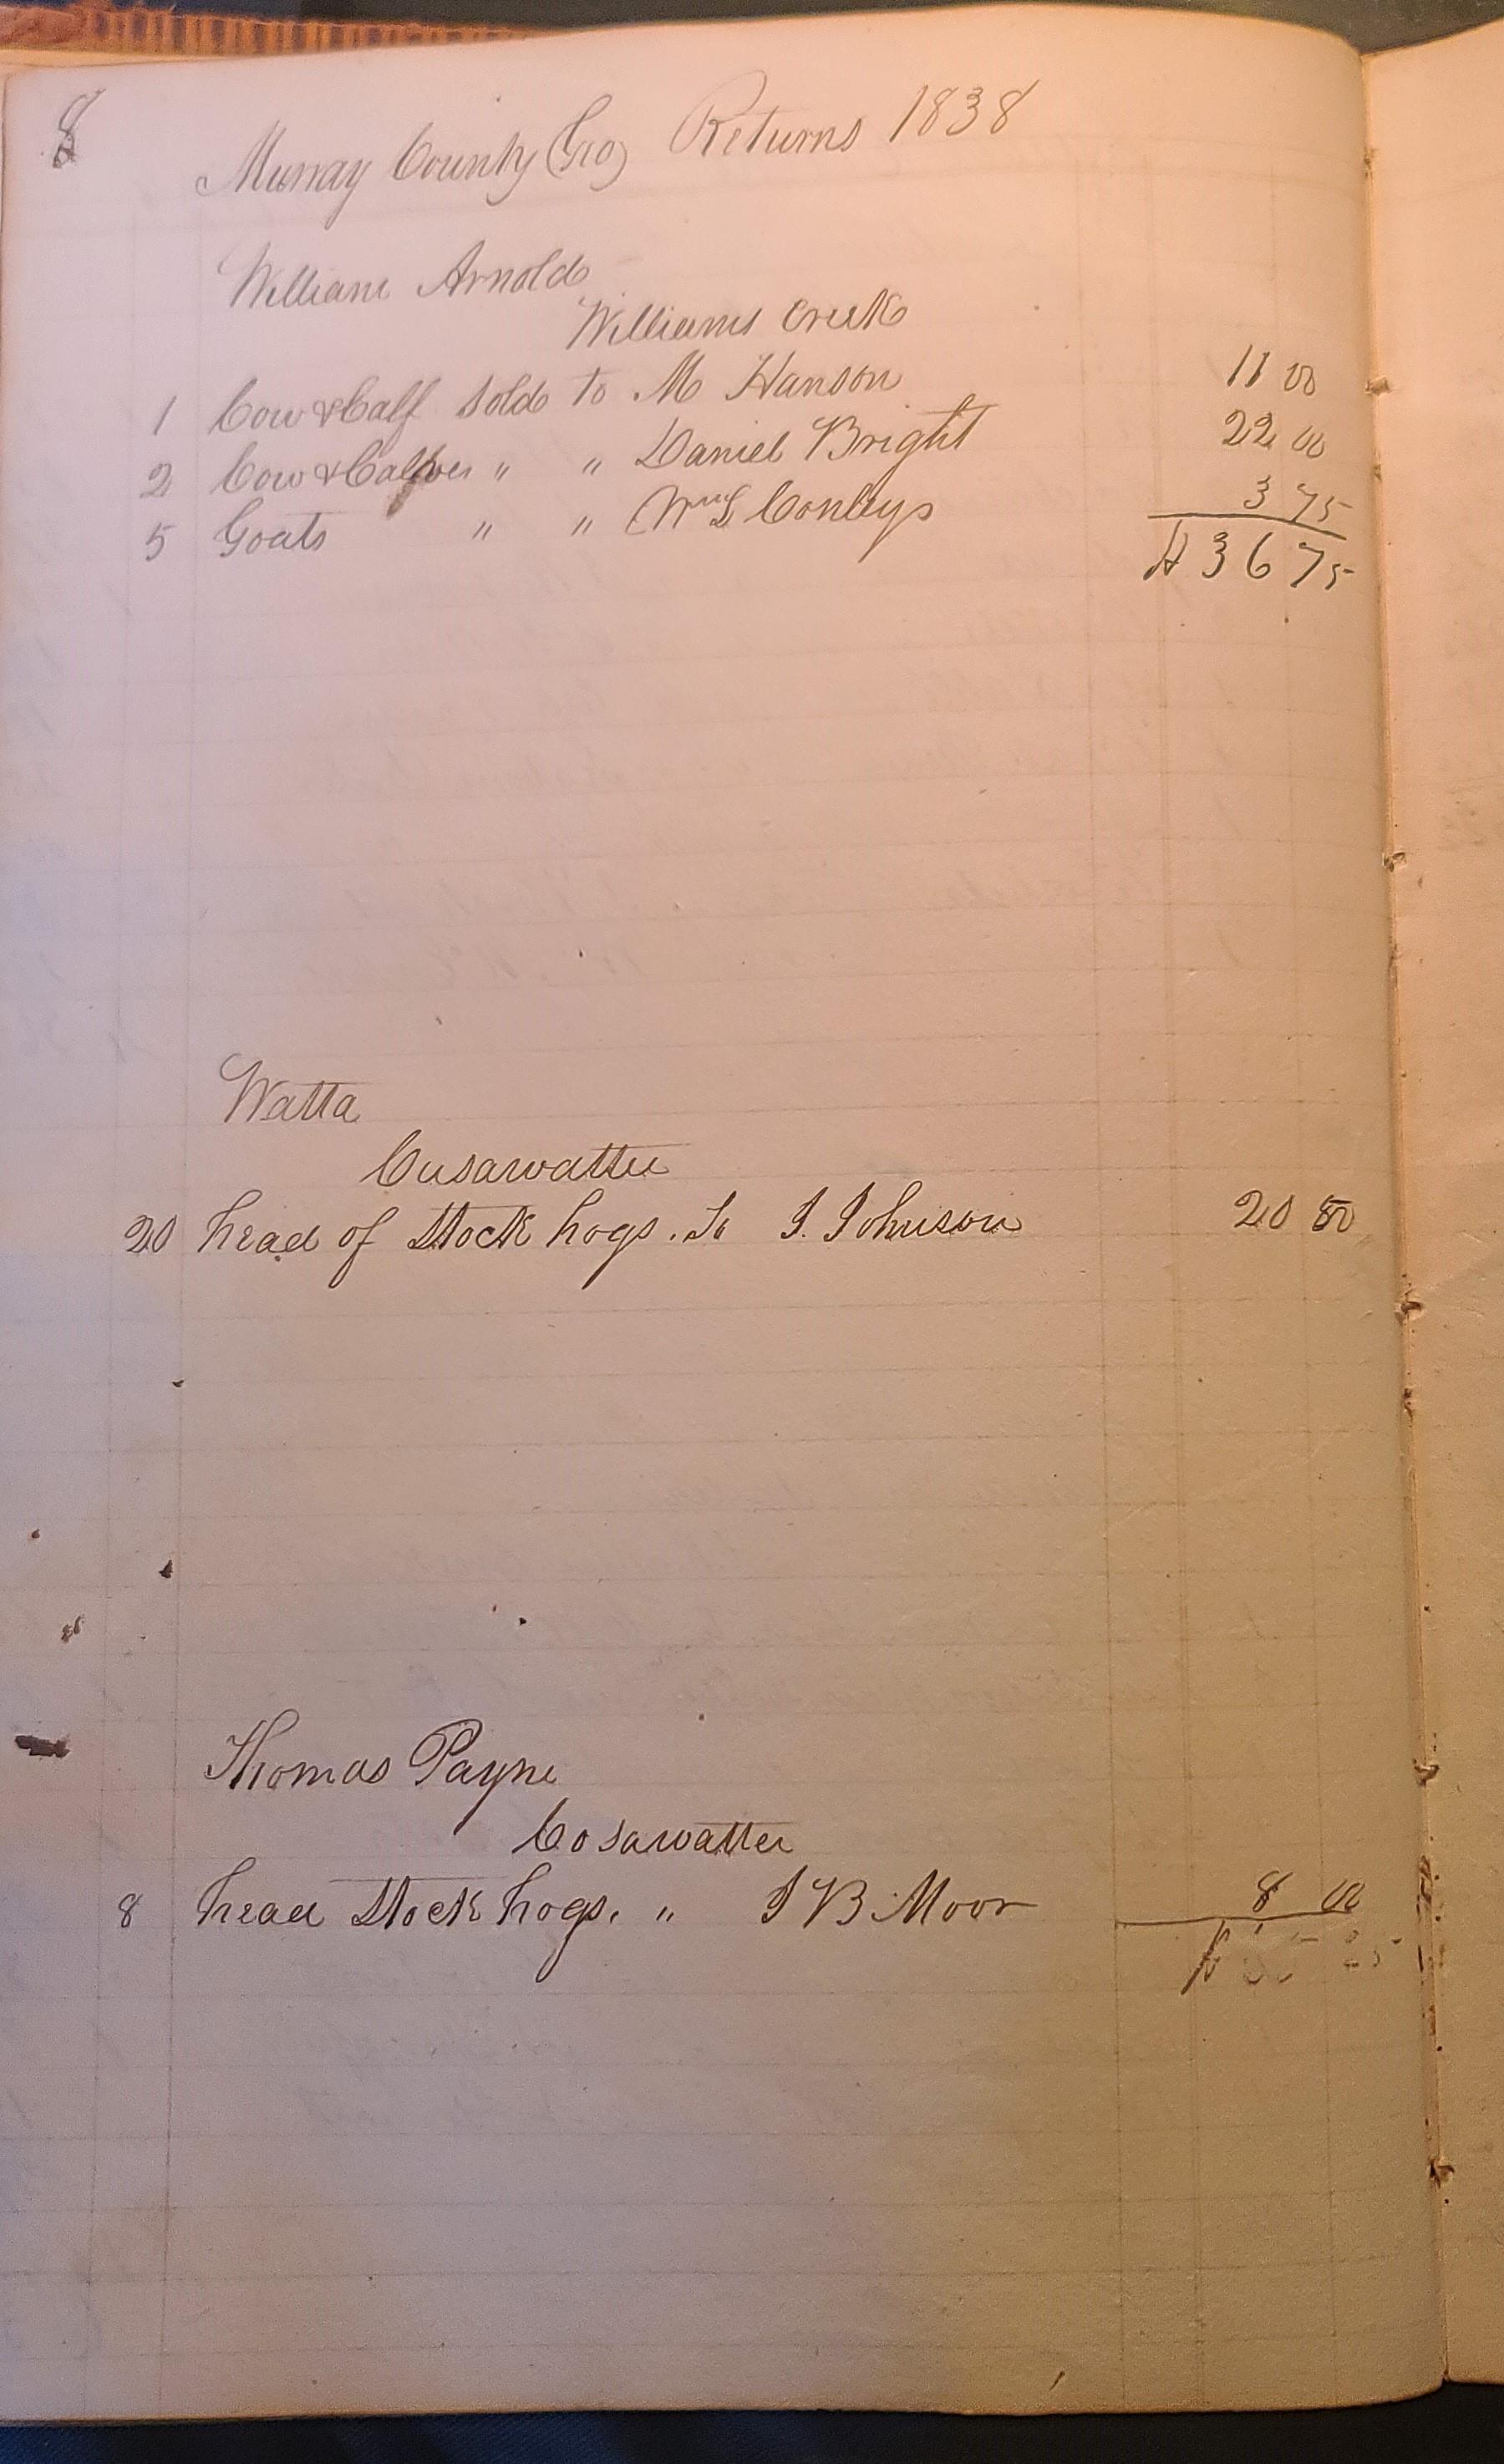 8
Murray County (Geo) Returns 1838
William Arnold
Williams Creek
1 Cow & Calf Sold to M Hanson 11 00
2 Cow & Calves " " Daniel Bright 22 00
5 Goats " " Wm L Conleys 3 75
$ 36 75
Watta
Cusawattee
20 head of Stock hogs. To J. Johnison 20 50
Thomas Payne
Cosawattee
8 head Stock hogs. " J B Moor 8 00